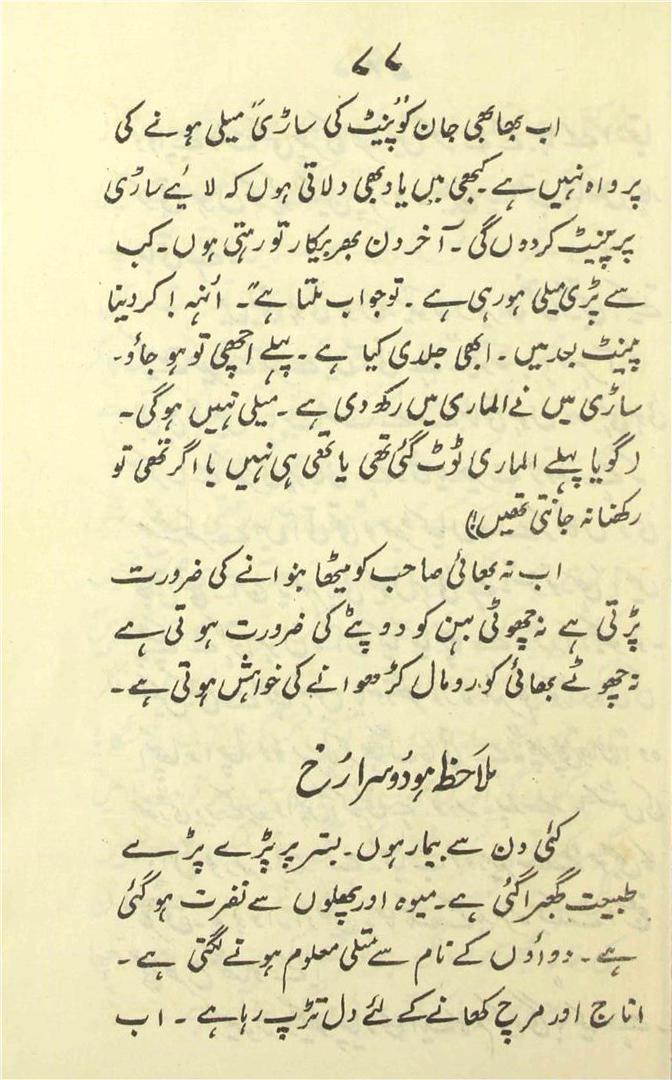 ۷۷
اب بھابھی جان کو "پَینٹ کی ساڑی" میلی ہونے کی
پرواہ نہیں ہے۔ کبھی میں یاد بھی دلاتی ہوں کہ لائیے ساڑی
پر پینٹ کردوں گی۔ آخر دن بھر بیکار تو رہتی ہوں۔ کب
سے پڑی میلی ہورہی ہے۔ تو جواب ملتا ہے"۔ اُنہہ! کردینا
پینٹ بعد میں۔ ابھی جلدی کیا ہے۔ پہلے اچھی تو ہو جاؤ۔
ساڑی میں نے الماری میں رکھ دی ہے۔ میلی نہیں ہوگی۔
(گویا پہلے الماری ٹوٹ گئی تھی یا تھی ہی نہیں یا اگر تھی تو
رکھنا نہ جانتی تھیں!)
اب نہ بھائی صاحب کو میٹھا بنوانے کی ضرورت
پڑتی ہے نہ چھوٹی بہن کو دوپٹے کی ضرورت ہوتی ہے
نہ چھوٹے بھائی کو رومال کڑھوانے کی خواہش ہوتی ہے۔
ملاحظہ ہو دُوسرا رُخ
کئی دن سے بیمار ہوں۔ بستر پر پڑے پڑے
طبیعت گھبرا گئی ہے۔ میوہ اور پھلوں سے نفرت ہوگئی
ہے۔ دواؤں کے نام سے متلی معلوم ہونے لگتی ہے۔
اناج اور مرچ کھانے کے لئے دل تڑپ رہا ہے۔ اب